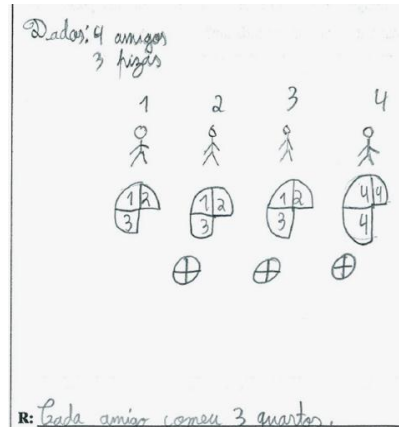 Dados: 4 amigos
3 pizas
1 2 3 4
1 2 1 2 1 2 4 4
3 3 3 4
R: Cada amigo comeu 3 quartos.